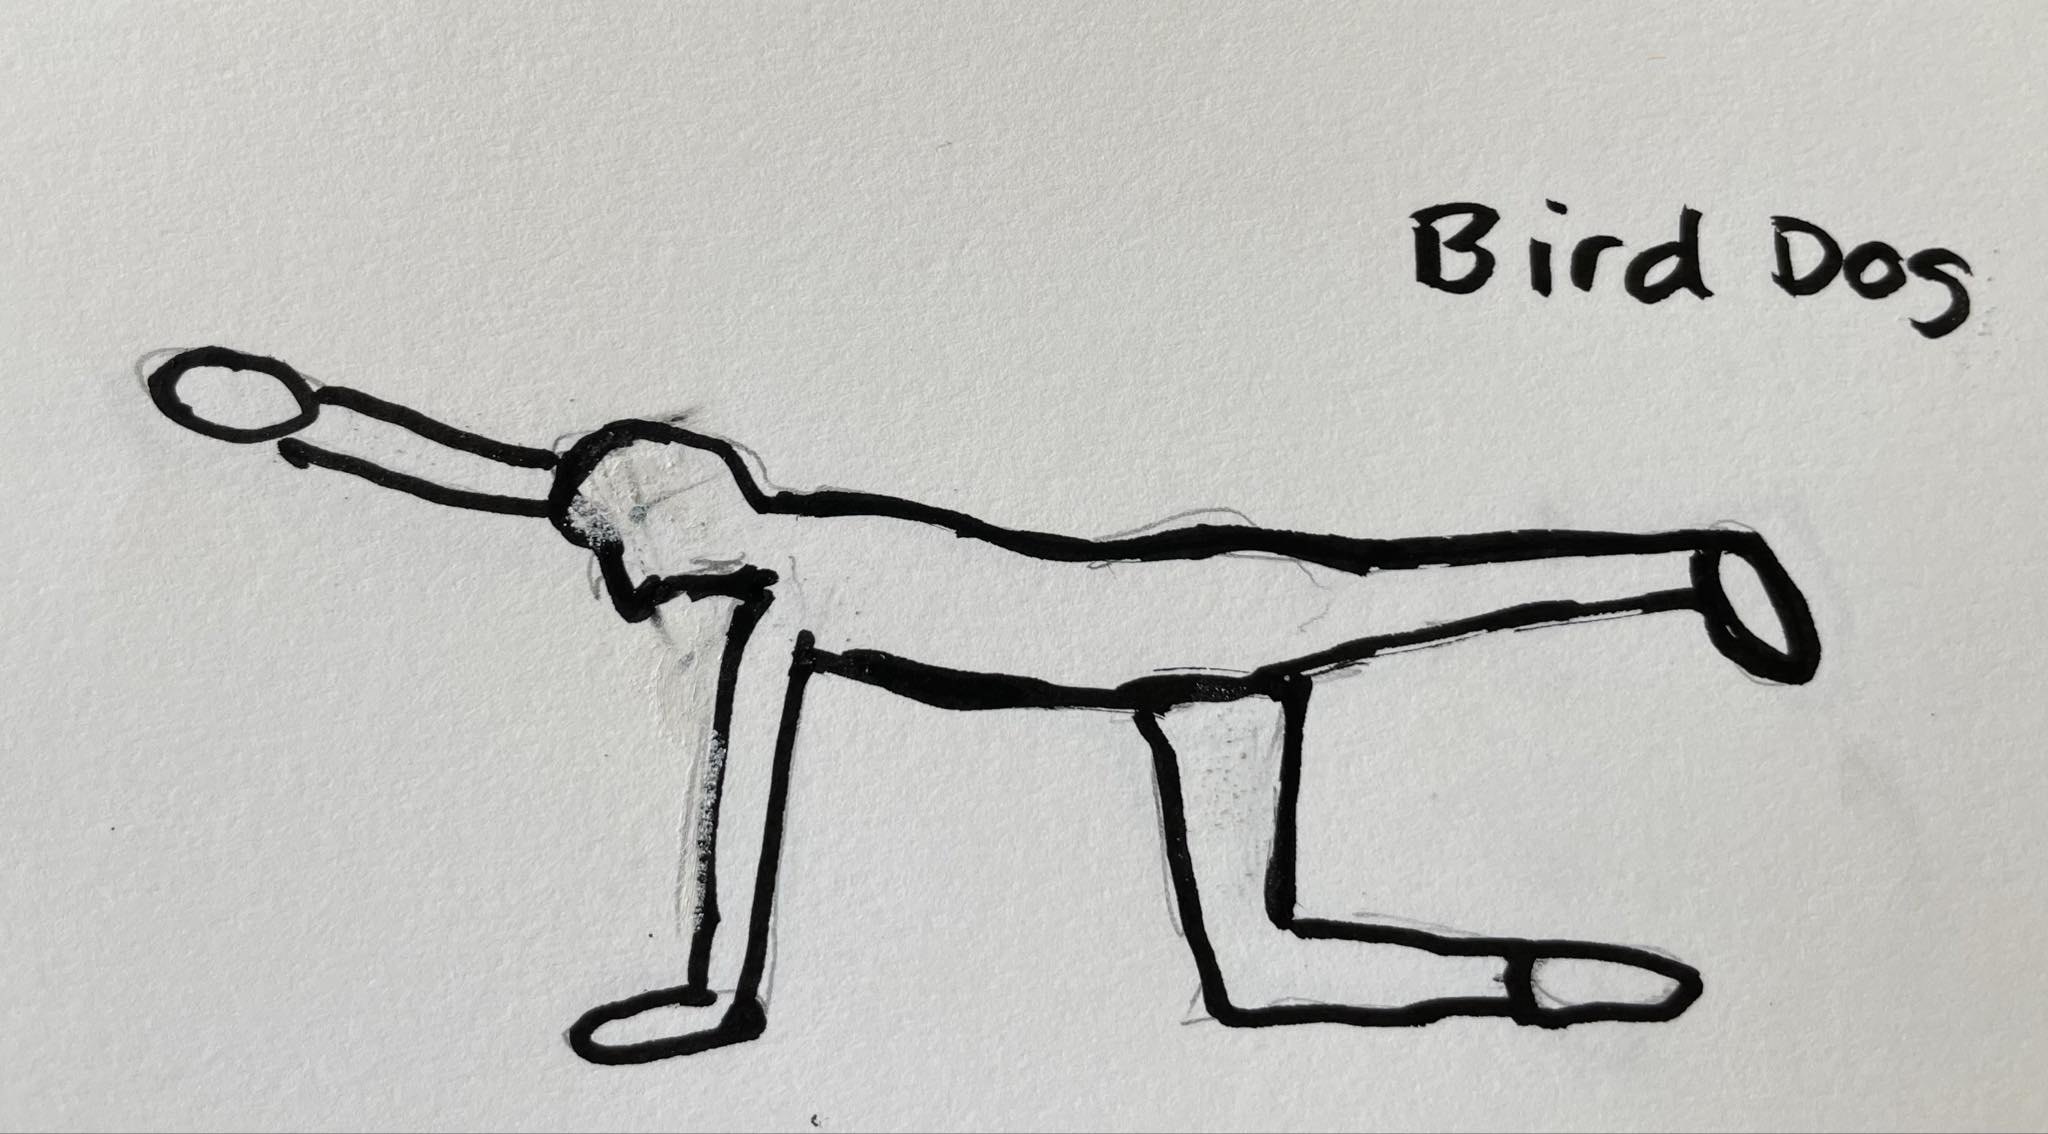 Bird Dog